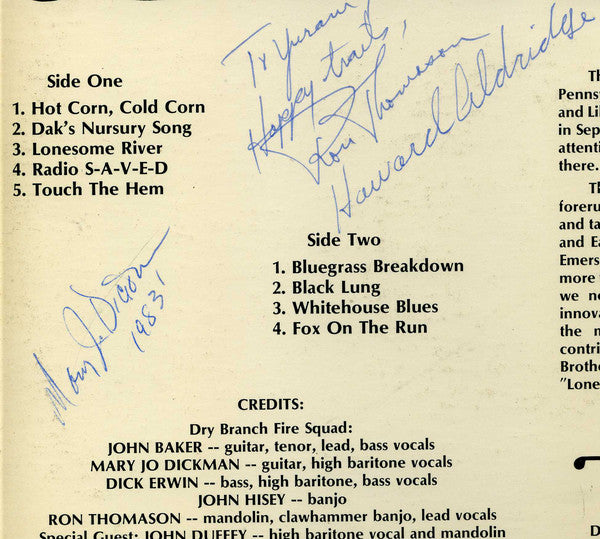 To Yuram,
Happy trails,
Ron Thomason
Howard Aldridge
Side One
1. Hot Corn, Cold Corn
2. Dak's Nursury Song
3. Lonesome River
4. Radio S-A-V-E-D
5. Touch The Hem
Side Two
1. Bluegrass Breakdown
2. Black Lung
3. Whitehouse Blues
4. Fox On The Run
Mary Jo Dickman
1983!
CREDITS:
Dry Branch Fire Squad:
JOHN BAKER -- guitar, tenor, lead, bass vocals
MARY JO DICKMAN -- guitar, high baritone vocals
DICK ERWIN -- bass, high baritone, bass vocals
JOHN HISEY -- banjo
RON THOMASON -- mandolin, clawhammer banjo, lead vocals
Special Guest: JOHN DUFFEY -- high baritone vocal and mandolin
Th
Pennsy
and Li
in Sep
attenti
there.
Th
foreru
and ta
and Ea
Emers
more
we ne
innova
the n
contri
Brothe
"Lone
D